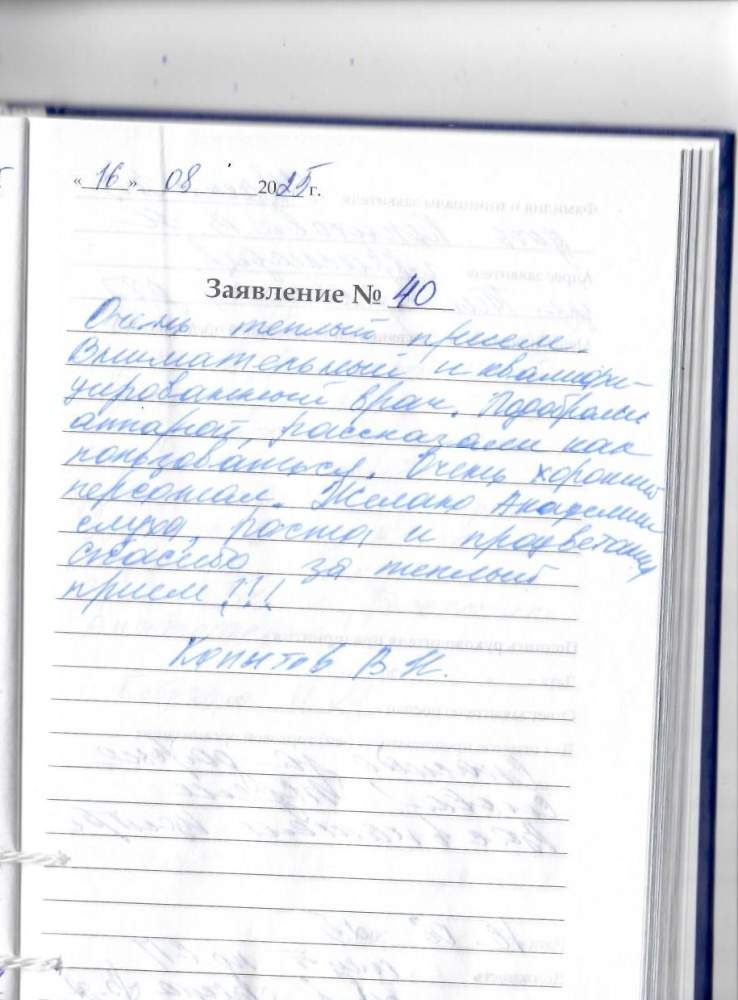 « 16 » 08 2025 г.
Заявление № 40
Очень теплый прием.
Внимательный и квалифи-
цированный врач. Подобрали
аппарат, рассказали как
пользоваться. Очень хороший
персонал. Желаю Академии
слуха, роста и процветания
спасибо за теплый
прием!!!
Копытов В.Н.